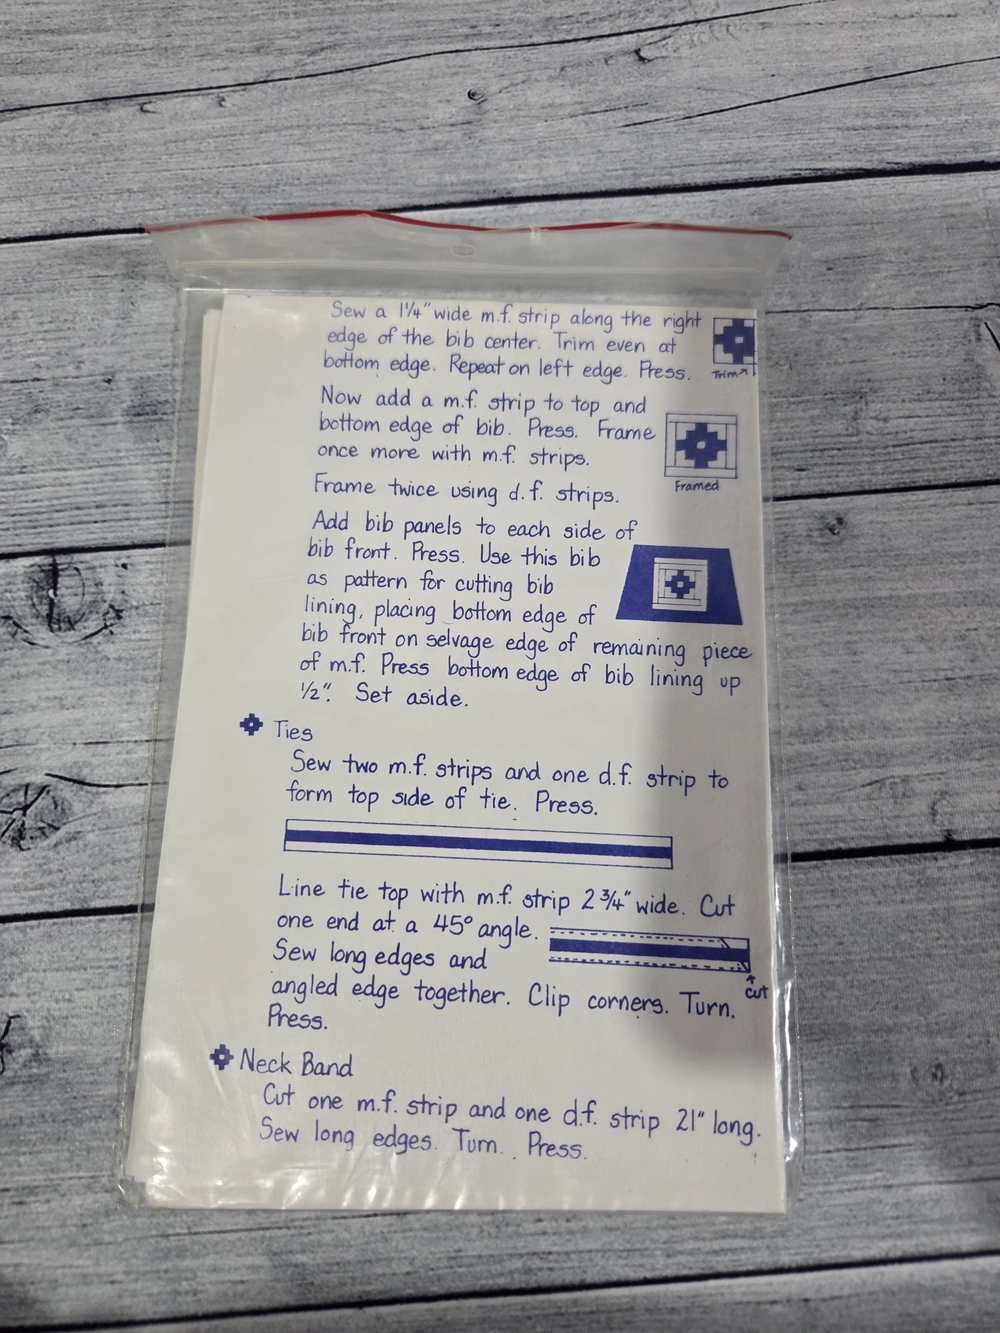 Sew a 1¼" wide m.f. strip along the right
edge of the bib center. Trim even at
bottom edge. Repeat on left edge. Press.
Trim
Now add a m.f. strip to top and
bottom edge of bib. Press. Frame
once more with m.f. strips.
Framed
Frame twice using d.f. strips.
Add bib panels to each side of
bib front. Press. Use this bib
as pattern for cutting bib
lining, placing bottom edge of
bib front on selvage edge of remaining piece
of m.f. Press bottom edge of bib lining up
½". Set aside.
Ties
Sew two m.f. strips and one d.f. strip to
form top side of tie. Press.
Line tie top with m.f. strip 2¾" wide. Cut
one end at a 45° angle.
Sew long edges and
cut
angled edge together. Clip corners. Turn.
Press.
Neck Band
Cut one m.f. strip and one d.f. strip 21" long.
Sew long edges. Turn. Press.